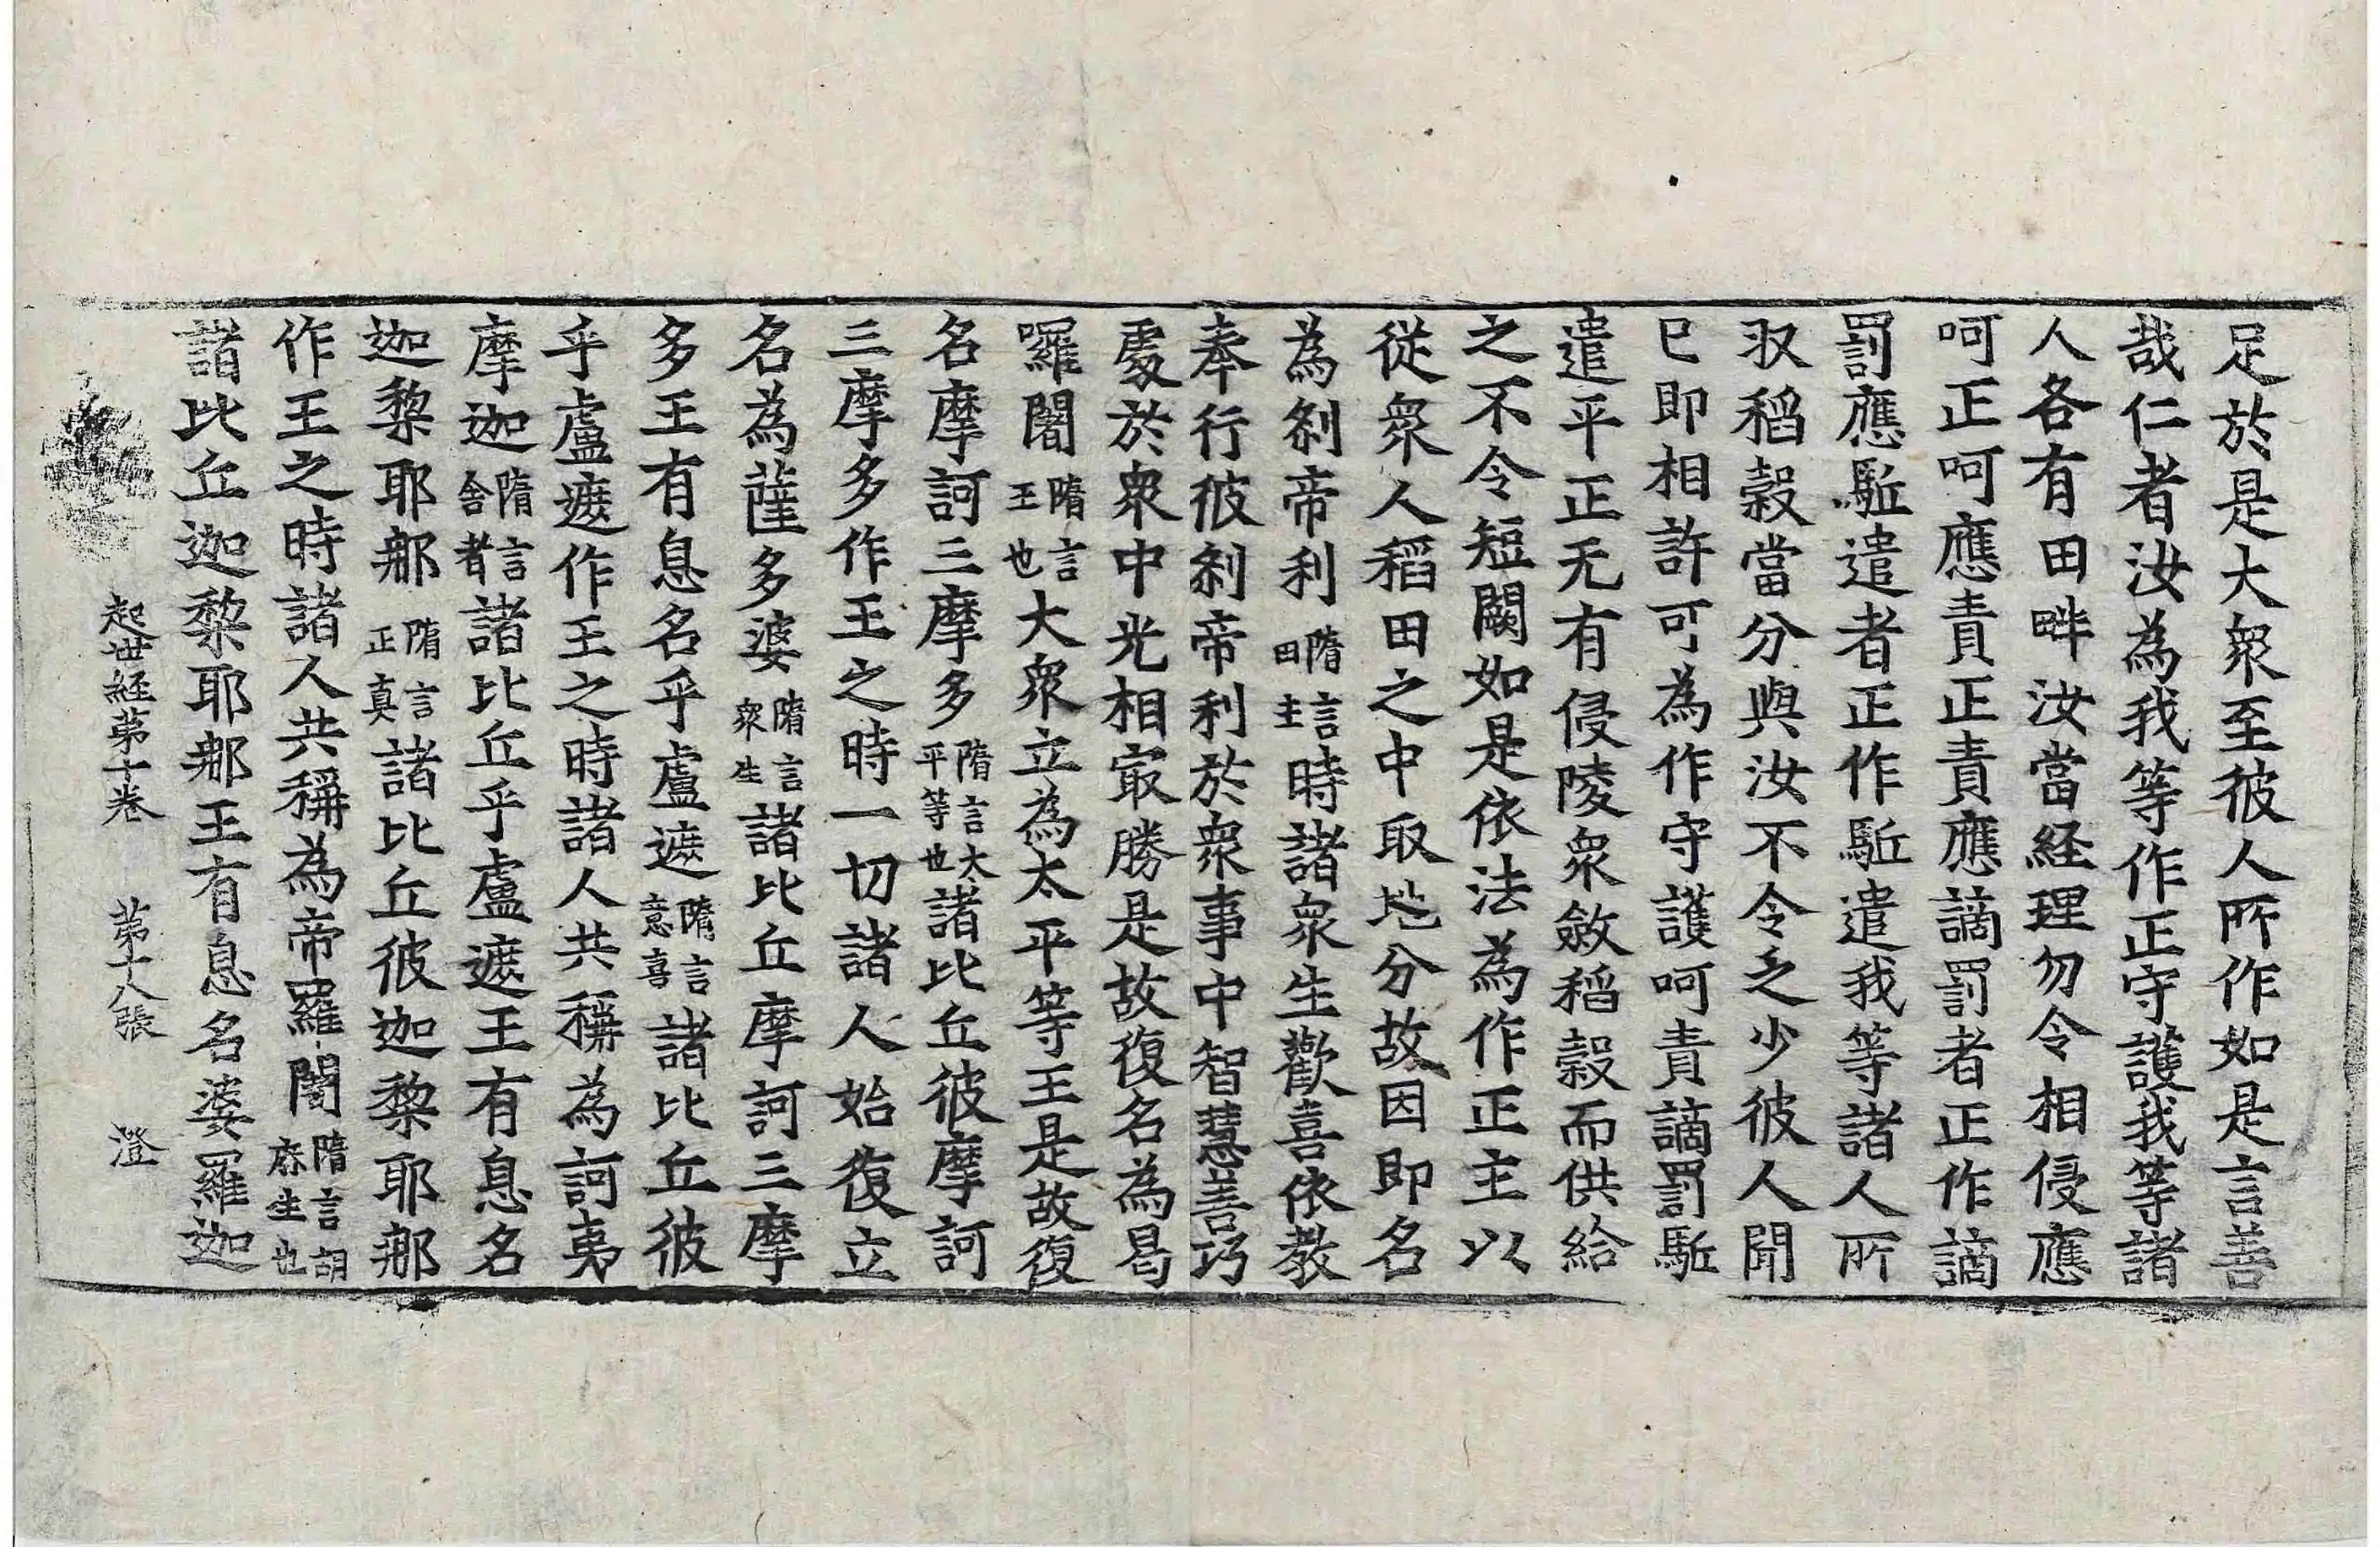 足於是大衆至彼人所作如是言善
哉仁者汝為我等作正守護我等諸
人各有田畔汝當経理勿令相侵應
呵正呵應責正責應謫罰者正作謫
罰應駈遣者正作駈遣我等諸人所
収稻穀當分與汝不令乏少彼人聞
已即相許可為作守護呵責謫罰駈
遣平正无有侵陵衆斂稻穀而供給
之不令短闕如是依法為作正主以
従衆人稻田之中取地分故因即名
為刹帝利隋言田主時諸衆生歡喜依教
奉行彼刹帝利於衆事中智慧善巧
處於衆中光相㝡勝是故復名為曷
囉闍隋言王也大衆立為太平等王是故復
名摩訶三摩多隋言大平等也諸比丘彼摩訶
三摩多作王之時一切諸人始復立
名為薩多婆隋言衆生諸比丘摩訶三摩
多王有息名乎盧遮隋言意喜諸比丘彼
乎盧遮作王之時諸人共稱為訶夷
摩迦隋言舍者諸比丘乎盧遮王有息名
迦黎耶那隋言正真諸比丘彼迦黎耶那
作王之時諸人共稱為帝羅闍隋言胡麻生也
諸比丘迦黎耶那王有息名婆羅迦
起世経第十卷 第十八張 澄